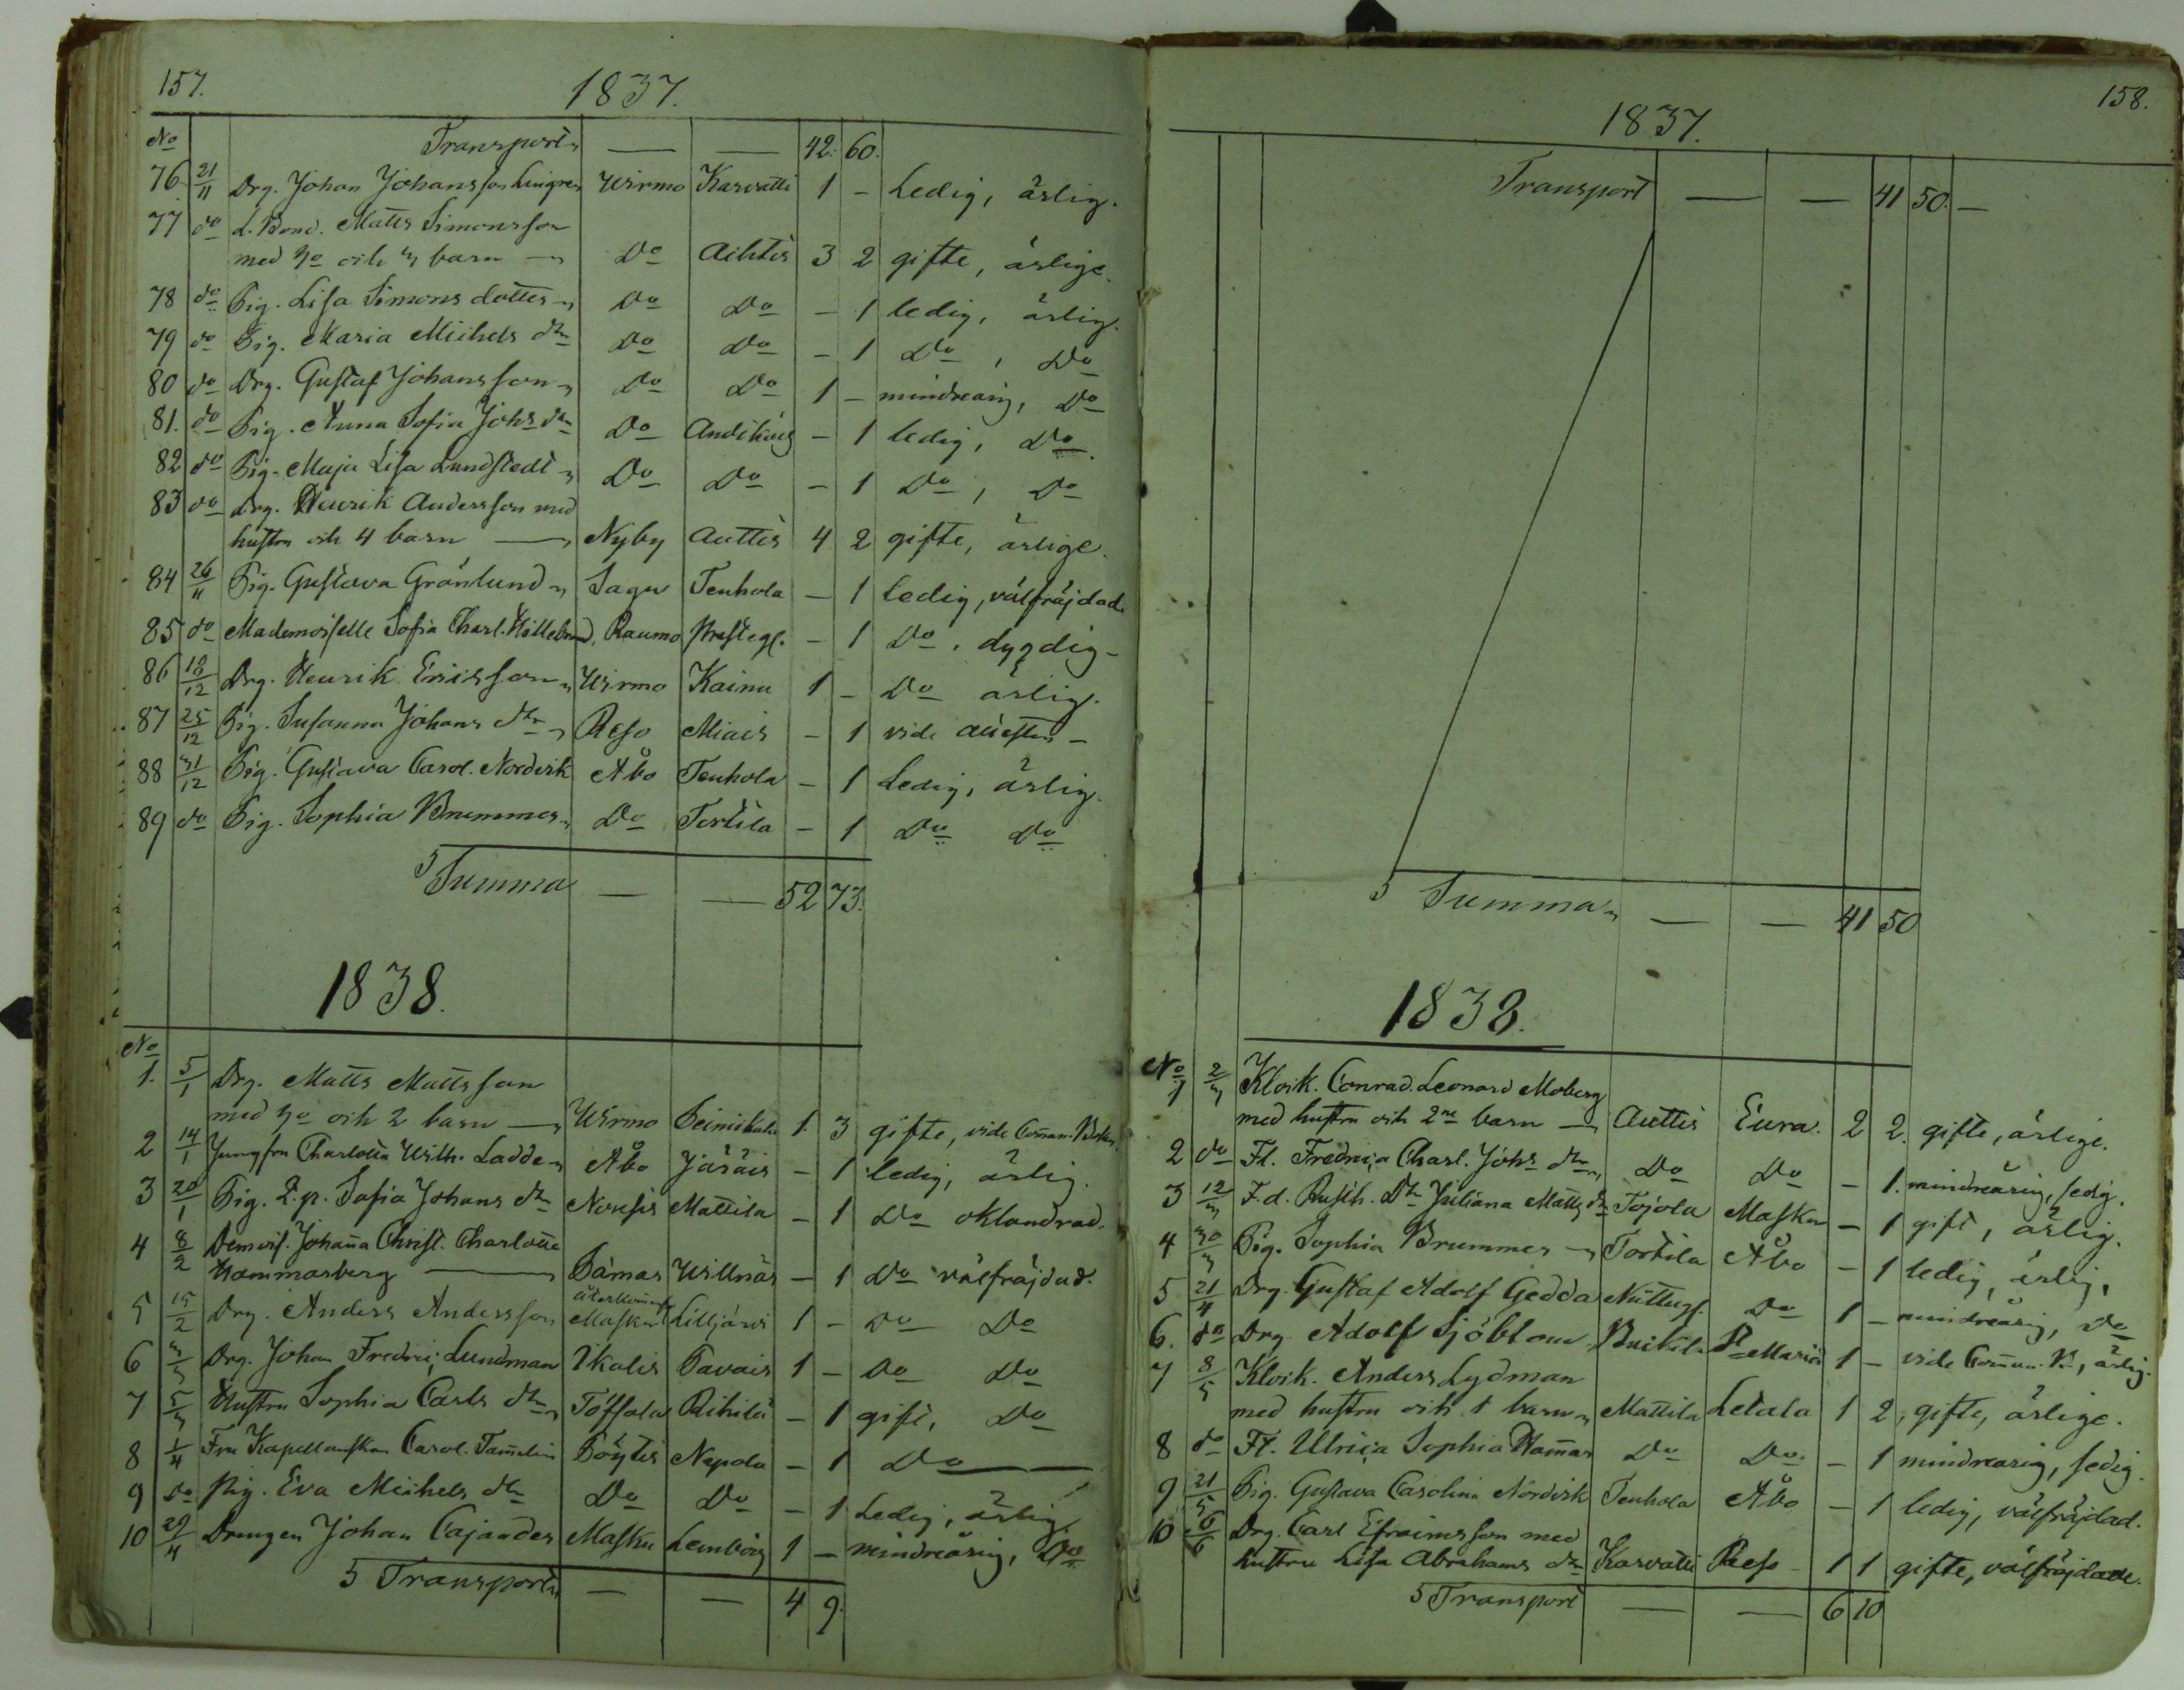 157.
1837.
No Transport — — 42. 60.
76 21/11 Drg. Johan Johansson Lingren Wirmo Karvatti 1 - Ledig, ärlig.
77 do L. Bond. Matts Simonsson
med h:o och 3 barn — Do Aihtis 3 2 gifte, ärlige.
78 do Pig. Lisa Simons dotter Do Do - 1 ledig, ärlig.
79 do Pig. Maria Michels dr Do Do - 1 Do, Do
80 do Drg. Gustaf Johansson Do Do 1 - mindreårig, Do
81. do Pig. Anna Sofia Johs dr Do - 1 ledig, Do.
82 do Pig. Maja Lisa Lundstedt Do Do - 1 Do, Do
83 do Drg. Henrik Andersson med
hustru och 4 barn — Nyby Auttis 4 2 gifte, ärlige.
84 26/11 Pig. Gustava Grönlund Sagu Tenhola - 1 ledig, välfräjdad.
85 do Mademoiselle Sofia Charl. Hillebrand, Raumo Prästeg. - 1 Do, dygdig -
86 12/12 Drg. Henrik Ericsson Wirmo Kainu 1 - Do ärlig.
87 25/12 Pig. Susanna Johans dr Reso Miais - 1 vide -
88 31/12 Pig. Gustava Carol. Nordvik Åbo Tenhola - 1 Ledig, ärlig.
89 do Pig. Sophia Brummer Do Tortila - 1 Do Do
Summa — — 52 73.
1838.
No
1. 5/1 Drg. Matts Mattsson
med h:o och 2 barn — Wirmo 1. 3 gifte, vide Comm. Boken
2 14/1 Jungfru Charlotta Wilh. Ladde Åbo Järäis - 1 ledig, ärlig.
3 20/1 Pig. Sofia Johans dr Nousis Mattila - 1 Do oklandrad.
4 8/2 Demois. Johanna Christ. Charlotta
Hammarberg — Pämar Willnäs - 1 Do välfräjdad.
återkommen
5 15/2 Drg. Anders Andersson Masku Lilljärvi 1 - Do Do
6 3/3 Drg. Johan Fredric Lundman Ikalis Pavais 1 - Do Do
7 5/3 Hustru Sophia Carls dr Töffala Rihilä - 1 gift, Do
8 1/4 Fru Kapellanskan Carol. Pöytis Nepola - 1 Do —
9 do Pig. Eva Michels dr Do Do - 1 Ledig, ärlig.
10 29/4 Drengen Johan Cajander Masku Lemberg 1 - mindreårig, Do
Transport — — 4 9.
158.
1837.
Transport — — 41 50. —
Summa — — 41 50
1838.
No
1 2/3 Klock. Conrad. Leonard Moberg
med hustru och 2ne barn — Auttis Eura. 2 2. gifte, ärlige.
2 do Fl. Fredrica Charl. Johs dr Do Do - 1. mindreårig, sedig.
3 12/3 F.d. Rusth. Dr Juliana Matts dr Tojola Masku - 1 gift, ärlig.
4 30/3 Pig. Sophia Brummer Tortila Åbo - 1 ledig, ärlig,
5 21/4 Drg. Gustaf Adolf Gedda Do 1 - mindreårig, Do
6. do Drg. Adolf Sjöblom St Marie 1 - vide Commun. B., ärlig.
7 8/5 Klock. Anders Lydman
med hustru och 1 barn Mattila Letala 1 2, gifte, ärlige.
8 do Fl. Ulrica Sophia Hammar Do Do. - 1 mindreårig, sedig.
9 21/5 Pig. Gustava Carolina Nordvik Tenhola Åbo - 1 ledig, välfräjdad.
10 6/6 Drg. Carl Efraimsson med
hustru Lisa Abrahams dr Karvatti Reso - 1 1 gifte, välfräjdade.
Transport — — 6 10